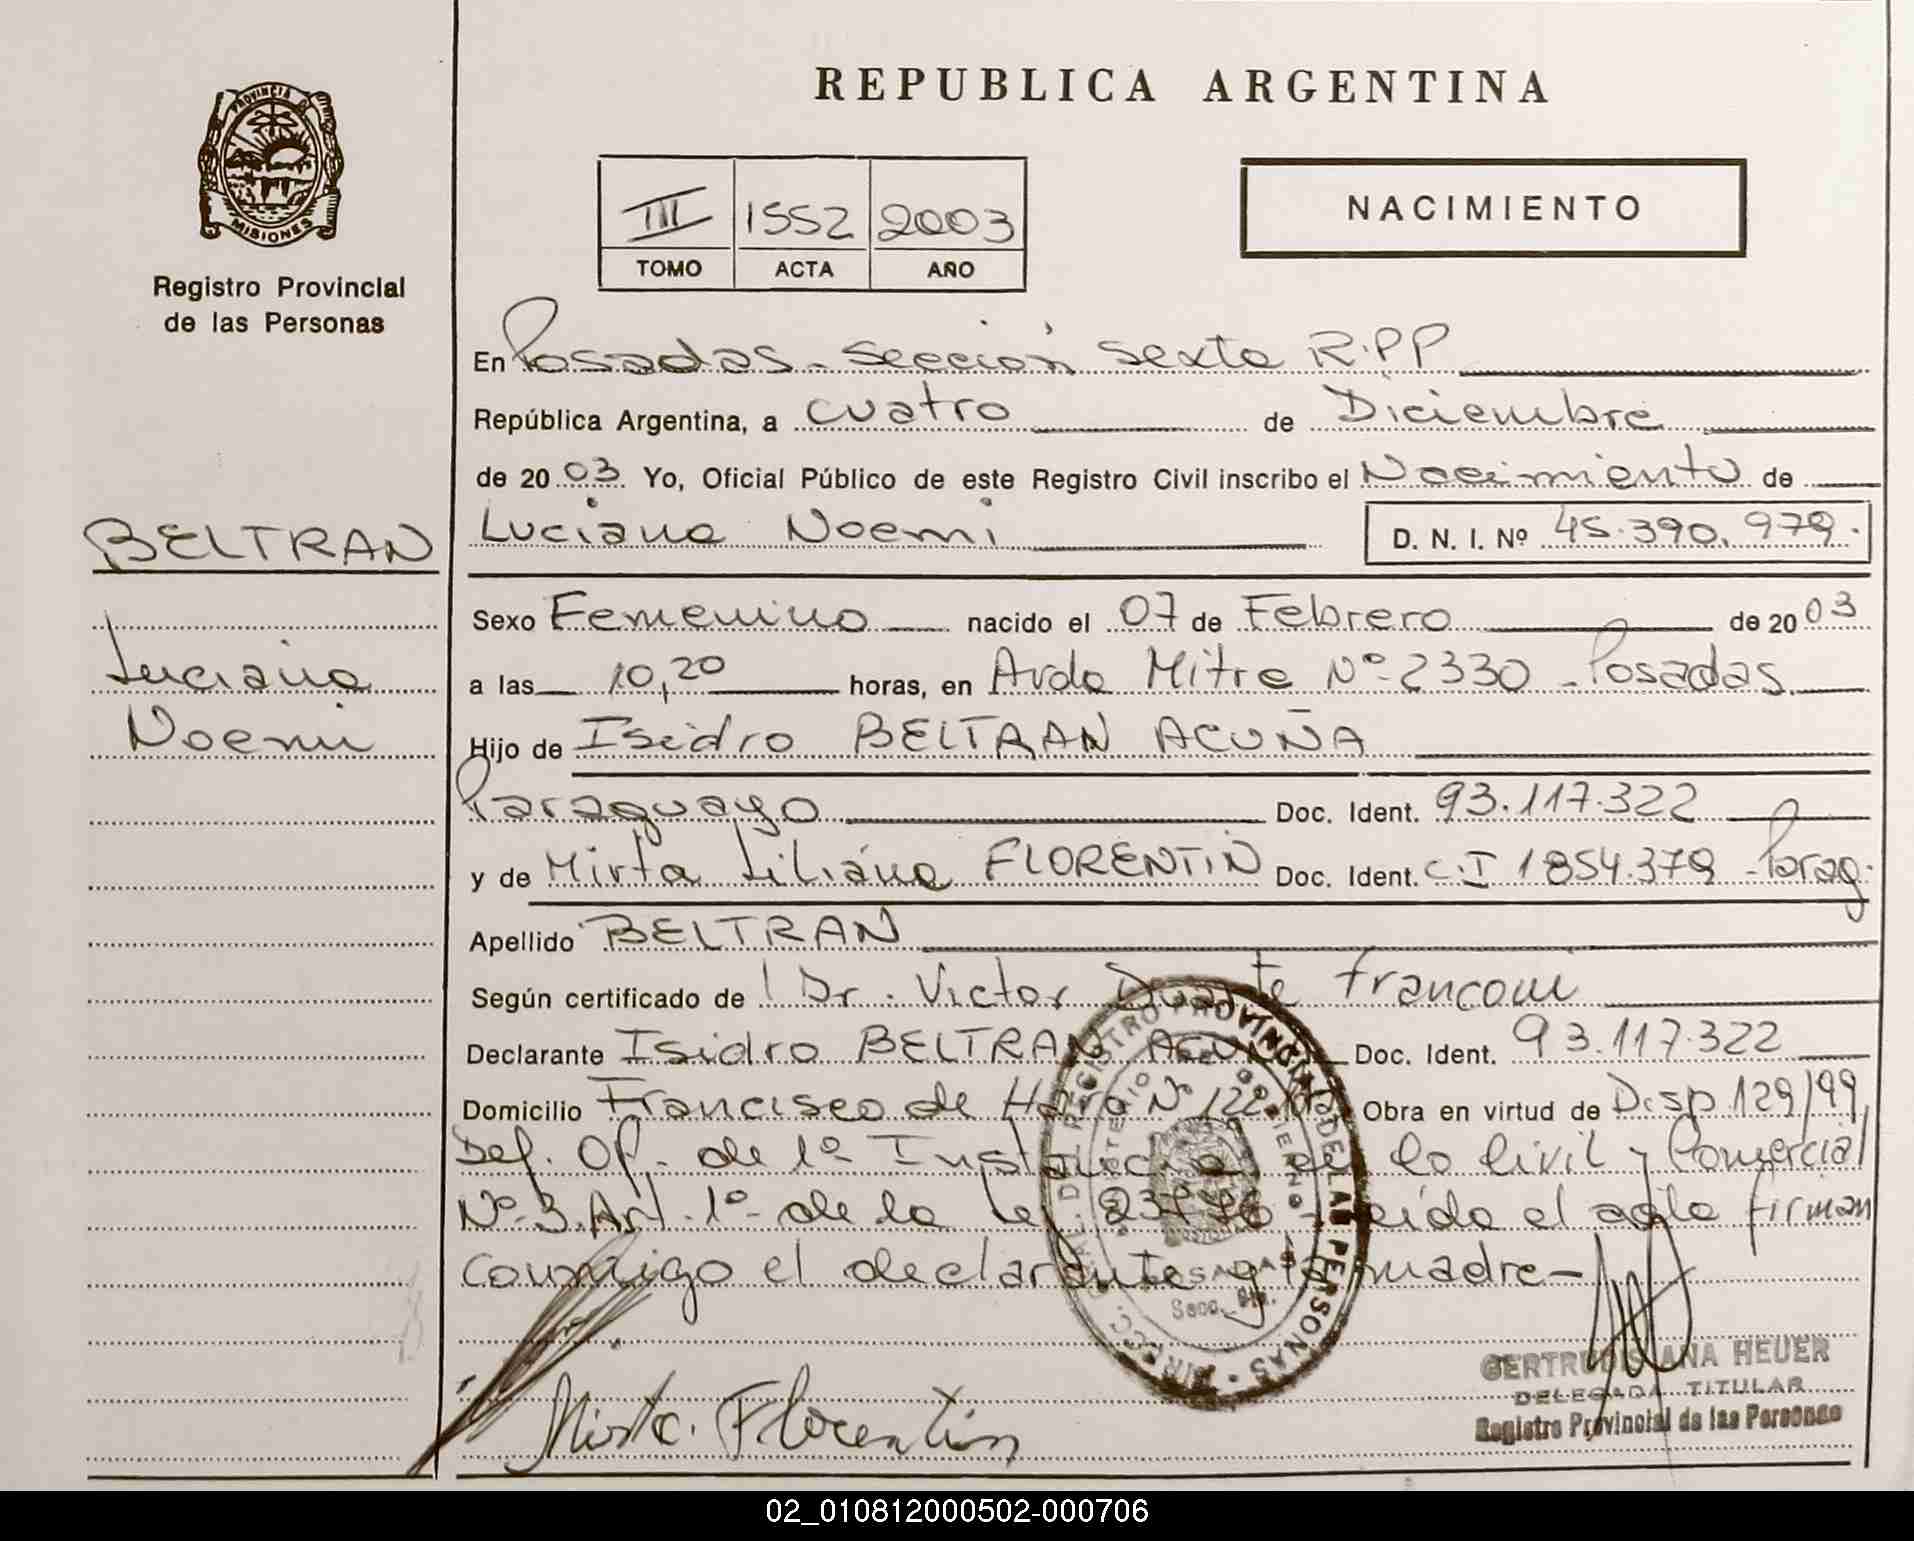 REPUBLICA ARGENTINA
PROVINCIA D
MISIONES
Registro Provincial
de las Personas
III 1552 2003
TOMO ACTA AÑO
NACIMIENTO
En Posadas - Sección Sexta R.P.P
República Argentina, a cuatro de Diciembre
de 2003. Yo, Oficial Público de este Registro Civil inscribo el Nacimiento de
Luciana Noemi D. N. I. Nº 45.390.979.
BELTRAN
Luciana
Noemi
Sexo Femenino nacido el 07 de Febrero de 2003
a las 10,20 horas, en Avda Mitre Nº 2330 - Posadas
Hijo de Isidro BELTRAN ACUÑA
Paraguayo Doc. Ident. 93.117.322
y de Mirta Liliana FLORENTIN Doc. Ident. C.I 1854.379 - Parag.
Apellido BELTRAN
Según certificado de Dr. Victor Duarte Franconi
Declarante Isidro BELTRAN ACUÑA Doc. Ident. 93.117.322
Domicilio Francisco de Haro Nº Obra en virtud de Disp 129/99,
Def. Of. de 1º Instancia en lo Civil y Comercial
Nº 3. Art. 1º de la Ley Leída el acta firman
conmigo el declarante y la madre -
REGISTRO PROVINCIAL DE LAS PERSONAS
POSADAS
Secc. 6ta.
Mirta Florentin
GERTRUDIS ANA HEUER
DELEGADA TITULAR
Registro Provincial de las Personas
02_010812000502-000706